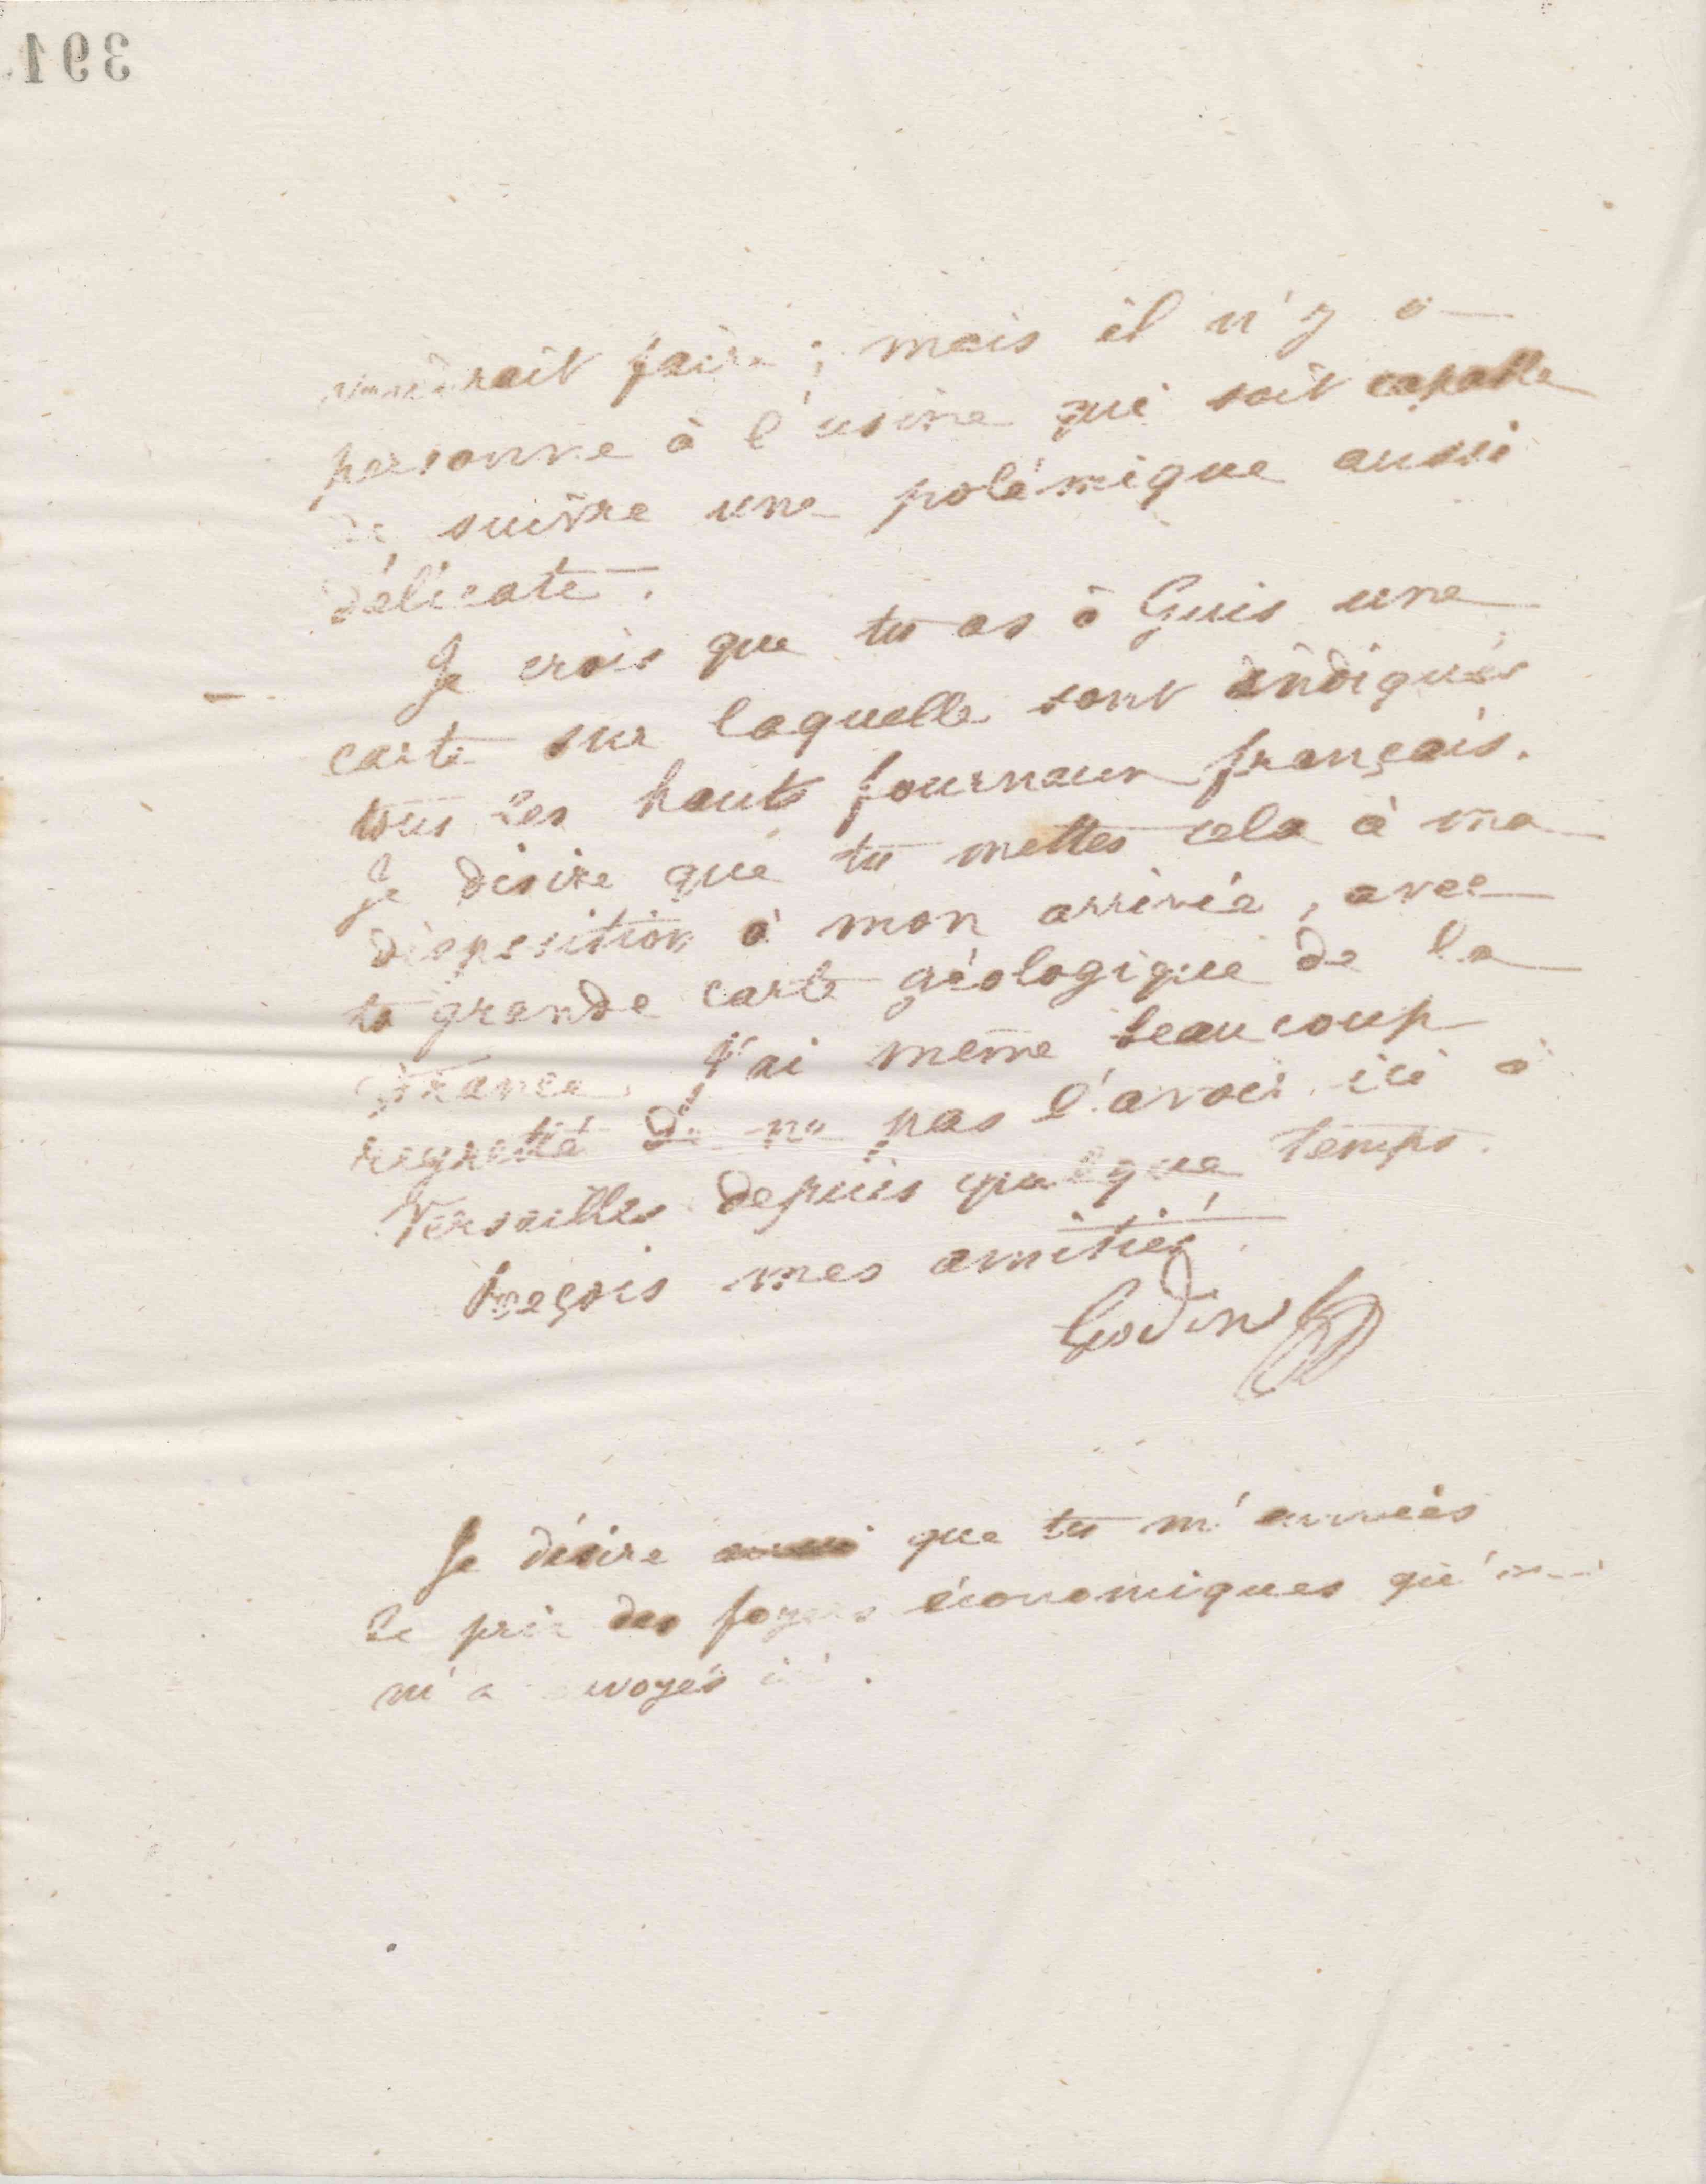 391
faire ; mais il n'y a
personne à l'usine qui soit capable
de suivre une polémique aussi
délicate.
Je crois que tu as à Guis une
carte sur laquelle sont indiqués
tous les hauts fourneaux français.
Je désire que tu mettes cela à ma
disposition à mon arrivée, avec
ta grande carte géologique de la
France. J'ai même beaucoup
regretté de ne pas l'avoir ici à
Versailles depuis quelque temps.
Reçois mes amitiés.
Godin
Je désire aussi que tu m'envoies
le prix des foyers économiques qu'on
m'a envoyés ici.